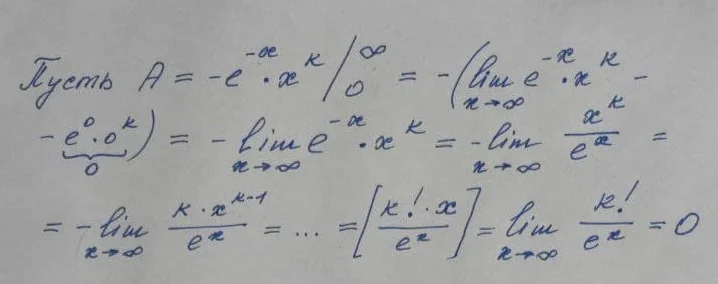 Пусть A = -e^{-x} · x^k |_0^∞ = -(lim_{x→∞} e^{-x} · x^k -
- e^0 · 0^k) = - lim_{x→∞} e^{-x} · x^k = - lim_{x→∞} x^k / e^x =
0
= - lim_{x→∞} k · x^{k-1} / e^x = ... = [k! · x / e^x] = lim_{x→∞} k! / e^x = 0